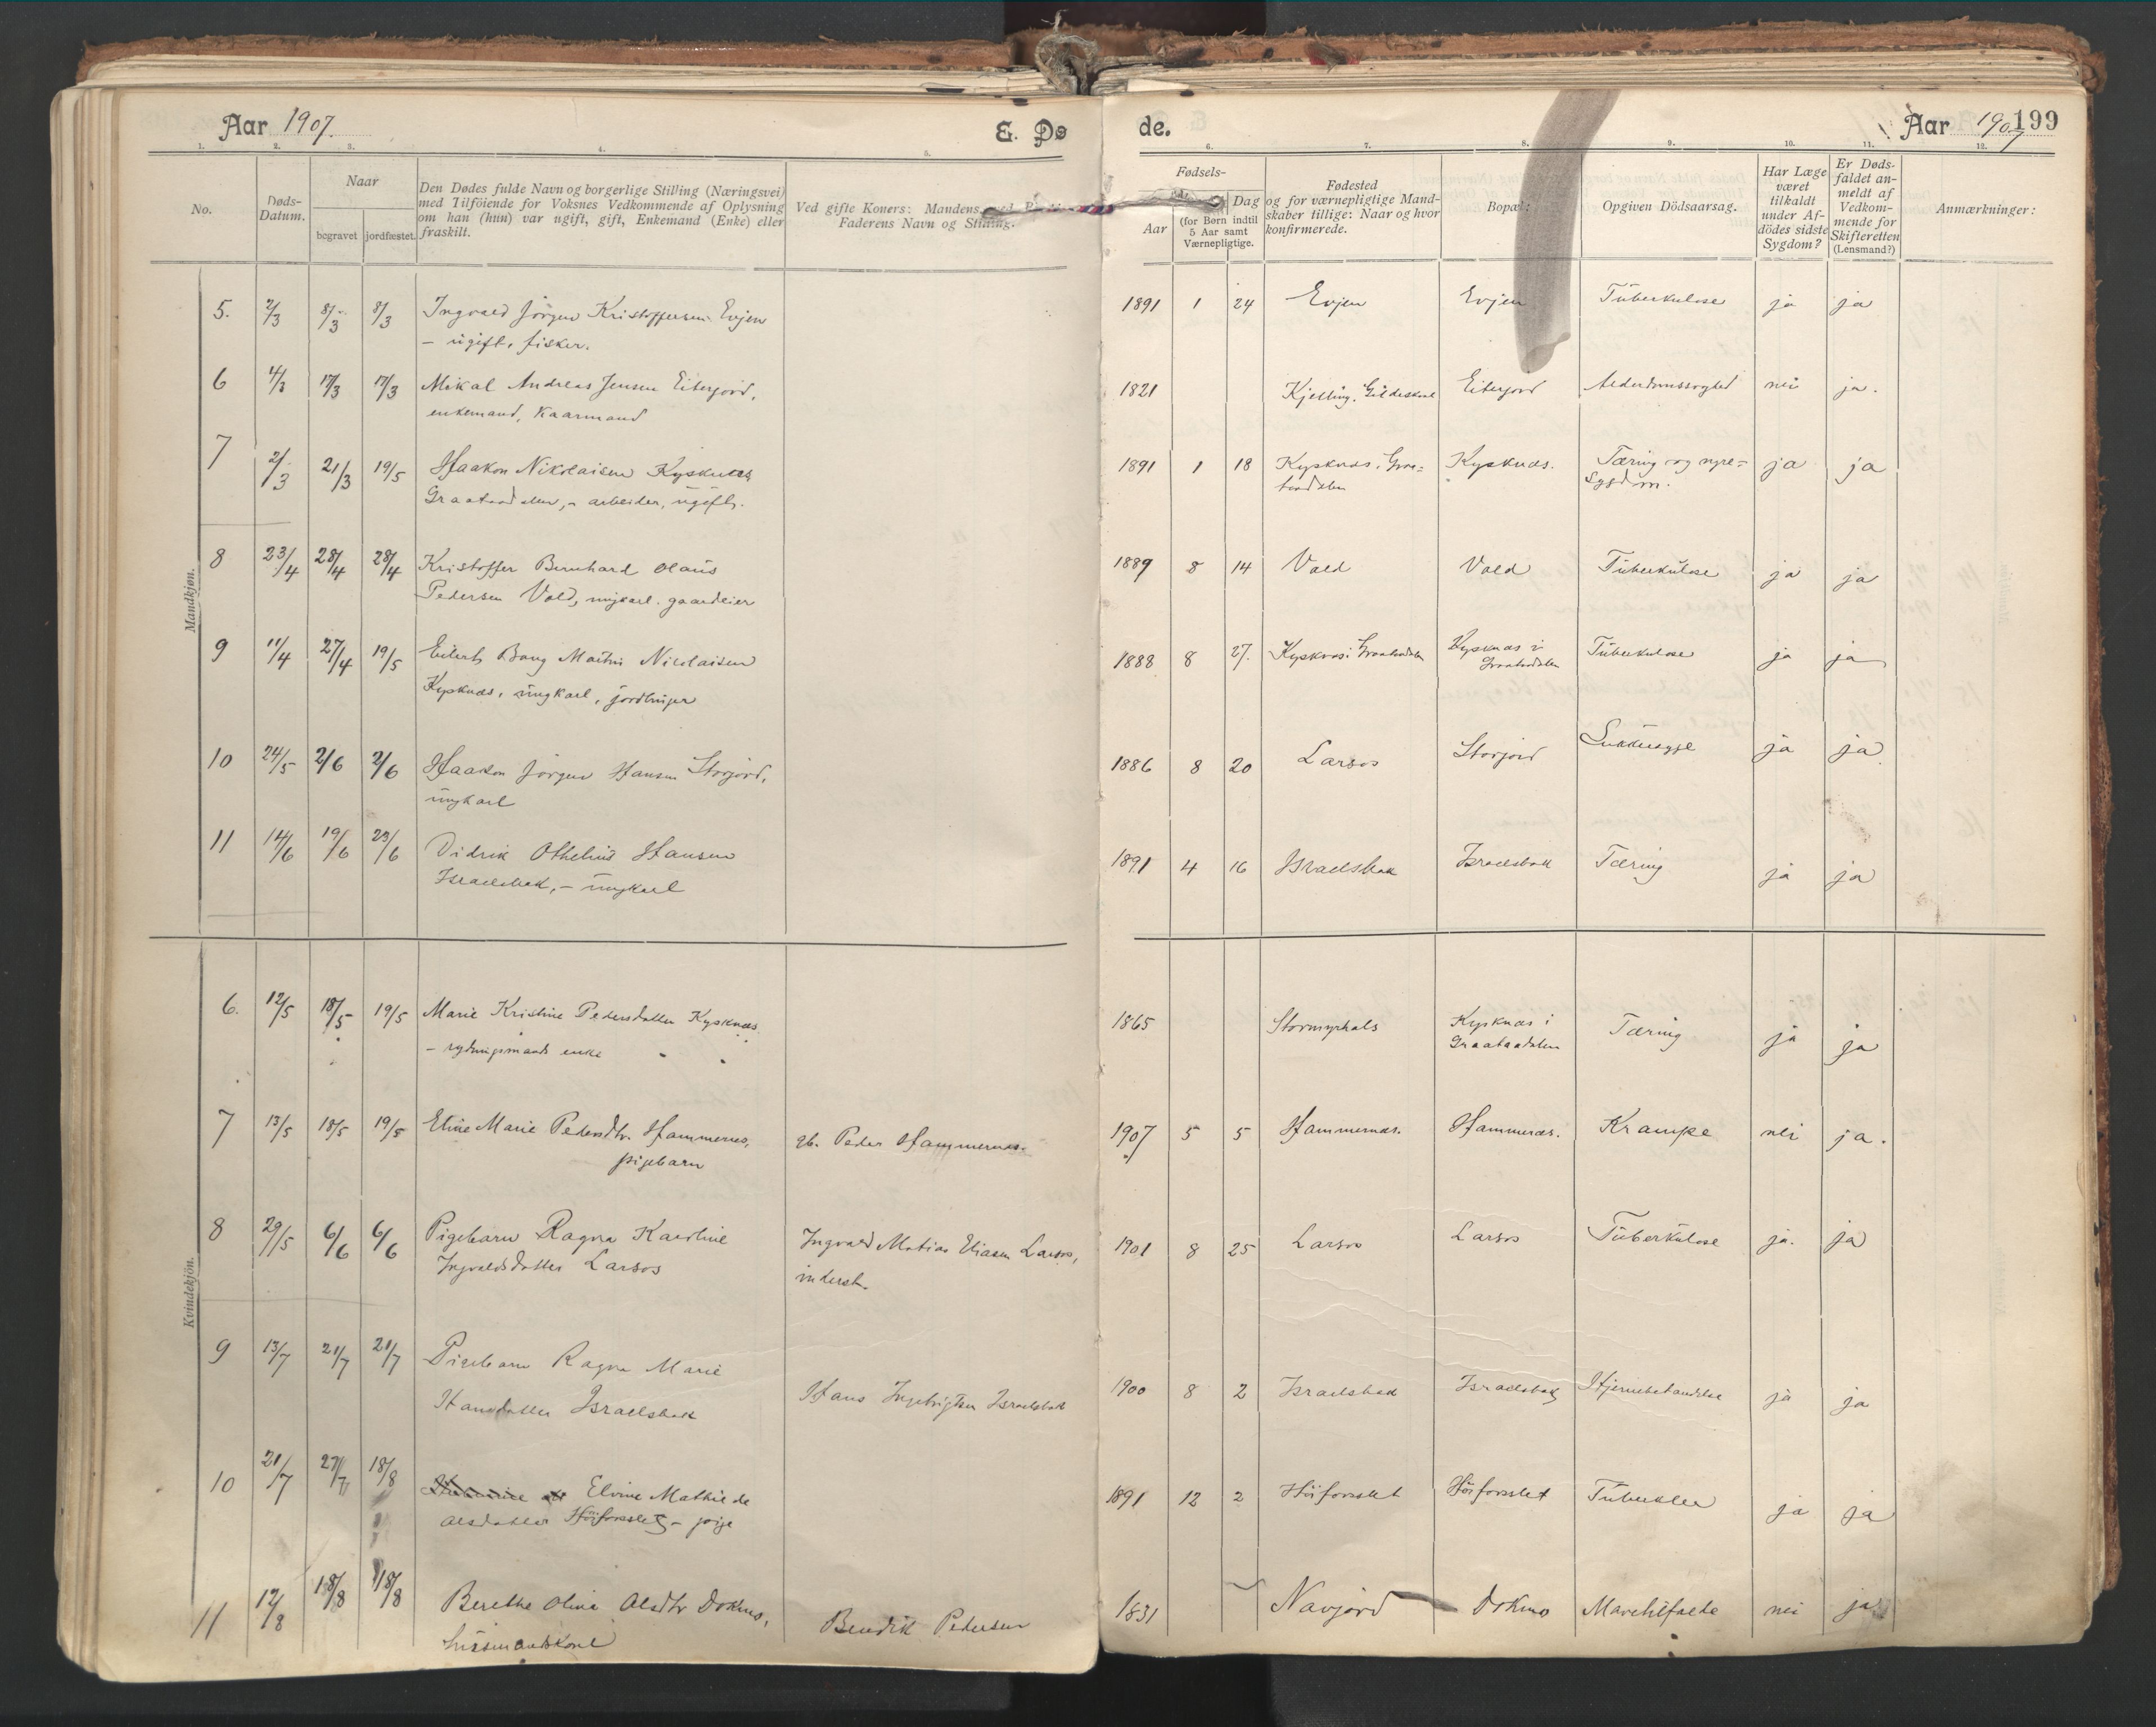 Aar 1907.
E. Dø
de.
Aar 1907
199
1. 2. 3. 4. 5. 6. 7. 8. 9. 10. 11. 12.
No.
Døds-
Datum.
Naar
begravet
jordfæstet.
Den Dødes fulde Navn og borgerlige Stilling (Næringsvei)
med Tilföiende for Voksnes Vedkommende af Oplysning
om han (hun) var ugift, gift, Enkemand (Enke) eller
fraskilt.
Ved gifte Koners: Mandens,
Faderens Navn og Stilling.
Fødsels-
Aar
Dag
(for Børn indtil
5 Aar samt
Værnepligtige.
Fødested
og for værnepligtige Mand-
skaber tillige: Naar og hvor
konfirmerede.
Bopæl:
Opgiven Dödsaarsag.
Har Læge
været
tilkaldt
under Af-
dödes sidste
Sygdom?
Er Døds-
faldet an-
meldt af
Vedkom-
mende for
Skifteretten
(Lensmand?)
Anmærkninger:
Mandkjøn.
5. 2/3 8/3 8/3 Ingvald Jörgen Kristoffersen Evjen 1891 1 24 Evjen Evjen Tüberkulose ja ja
- ügift, fisker.
6 4/3 17/3 17/3 Mikal Andreas Jensen Eiterjord, 1821 Kjelling, Gildeskaal Eiterjord Alderdomssvaghed nei ja.
enkemand, Kaarmand
7 2/3 21/3 19/5 Haakon Nikolaisen Kypsknæs 1891 1 18 Kypsknæs i Graa= Kyksnæs. Tæring og nyre= ja ja
Graataadalen, - arbeider, ügift.
taadalen
Sygdom.
8 23/4 28/4 28/4 Kristoffer Bernhard Olaüs 1889 8 14 Vold Vold Tüberkülose ja ja
Pedersen Vold, ungkarl. gaardeier
9 11/4 27/4 19/5 Eilert Bang Martin Nicolaisen 1888 8 27. Kypsknæs i Graatadalen Kypsknæs i Tüberkulose ja ja
Kypsknæs, üngkarl, jordbruger
Graatadalen
10 24/5 2/6 2/6 Haakon Jörgen Hansen Storjord, 1886 8 20 Larsos Storjord Sukkersyge ja ja
üngkarl
11 14/6 19/6 23/6 Didrik Othelius Hansen 1891 4 16 Israelsbak Israelsbak Tæring ja ja
Israelsbak, - üngkarl
Kvindekjön.
6. 12/5 18/5 19/5 Marie Kristine Pedersdatter Kypsknæs 1865 Stormyrhals Kypsknæs i Tæring ja ja
- rydningsmands enke
Graataadalen
7 13/5 18/5 19/5 Eline Marie Pedersdtr. Hammernes, gb. Peder Hammernæs. 1907 5 5 Hammernæs. Hammernæs. Krampe nei ja.
pigebarn
8 29/5 6/6 6/6 Pigebarn Ragna Karoline Ingvald Matias Eliasen Larsos, 1901 8 25 Larsos Larsos Tüberkülose ja. ja
Ingvaldsdatter Larsos
inderst.
9 13/7 21/7 21/7 Pigebarn Ragna Marie 1900 8 2 Israelsbak Israelsbak Hjernebetændelse ja ja
Hansdatter Israelsbak Hans Ingebrigtsen Israelsbak
10 21/7 27/7 18/8 Elvine Mathilde 1891 12 2 Höiforsslet Höiforsslet Tüberkler ja ja
Olsdatter Höiforsslet - pige
11 12/8 18/8 18/8 Berethe Olina Olsdtr Dokmo, Bendik Pedersen 1831 Navjord Dokmo Marehlfælde nei ja
Hüsmandskone